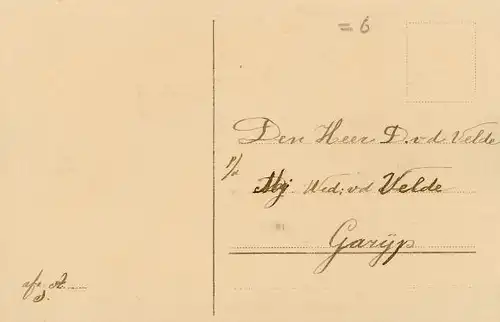 = 6
Den Heer D.v.d Velde
p/a
Mej Wed: vd Velde
Garijp
afz.